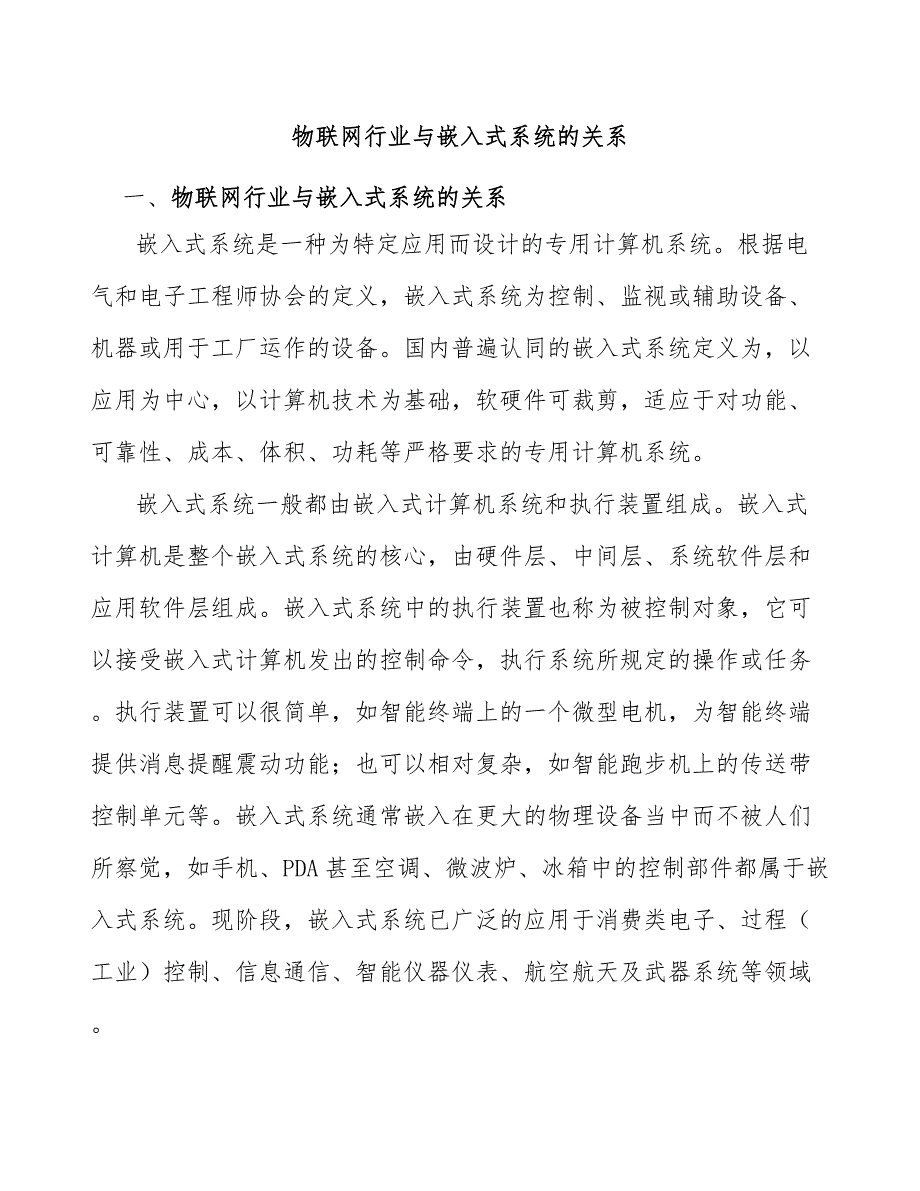 物联网行业与嵌入式系统的关系
一、物联网行业与嵌入式系统的关系
嵌入式系统是一种为特定应用而设计的专用计算机系统。根据电
气和电子工程师协会的定义，嵌入式系统为控制、监视或辅助设备、
机器或用于工厂运作的设备。国内普遍认同的嵌入式系统定义为，以
应用为中心，以计算机技术为基础，软硬件可裁剪，适应于对功能、
可靠性、成本、体积、功耗等严格要求的专用计算机系统。
嵌入式系统一般都由嵌入式计算机系统和执行装置组成。嵌入式
计算机是整个嵌入式系统的核心，由硬件层、中间层、系统软件层和
应用软件层组成。嵌入式系统中的执行装置也称为被控制对象，它可
以接受嵌入式计算机发出的控制命令，执行系统所规定的操作或任务
。执行装置可以很简单，如智能终端上的一个微型电机，为智能终端
提供消息提醒震动功能；也可以相对复杂，如智能跑步机上的传送带
控制单元等。嵌入式系统通常嵌入在更大的物理设备当中而不被人们
所察觉，如手机、PDA 甚至空调、微波炉、冰箱中的控制部件都属于嵌
入式系统。现阶段，嵌入式系统已广泛的应用于消费类电子、过程（
工业）控制、信息通信、智能仪器仪表、航空航天及武器系统等领域
。